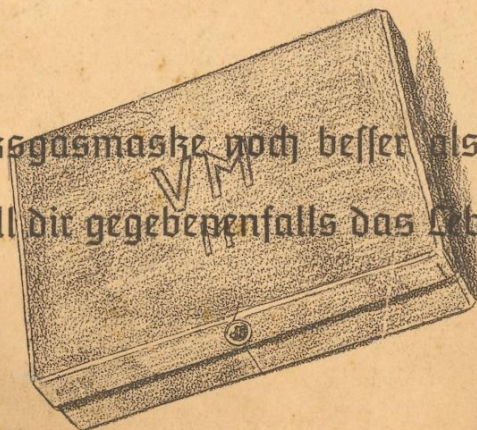 sgasmaske noch beſſer als
VM
ll dir gegebenenfalls das Leb